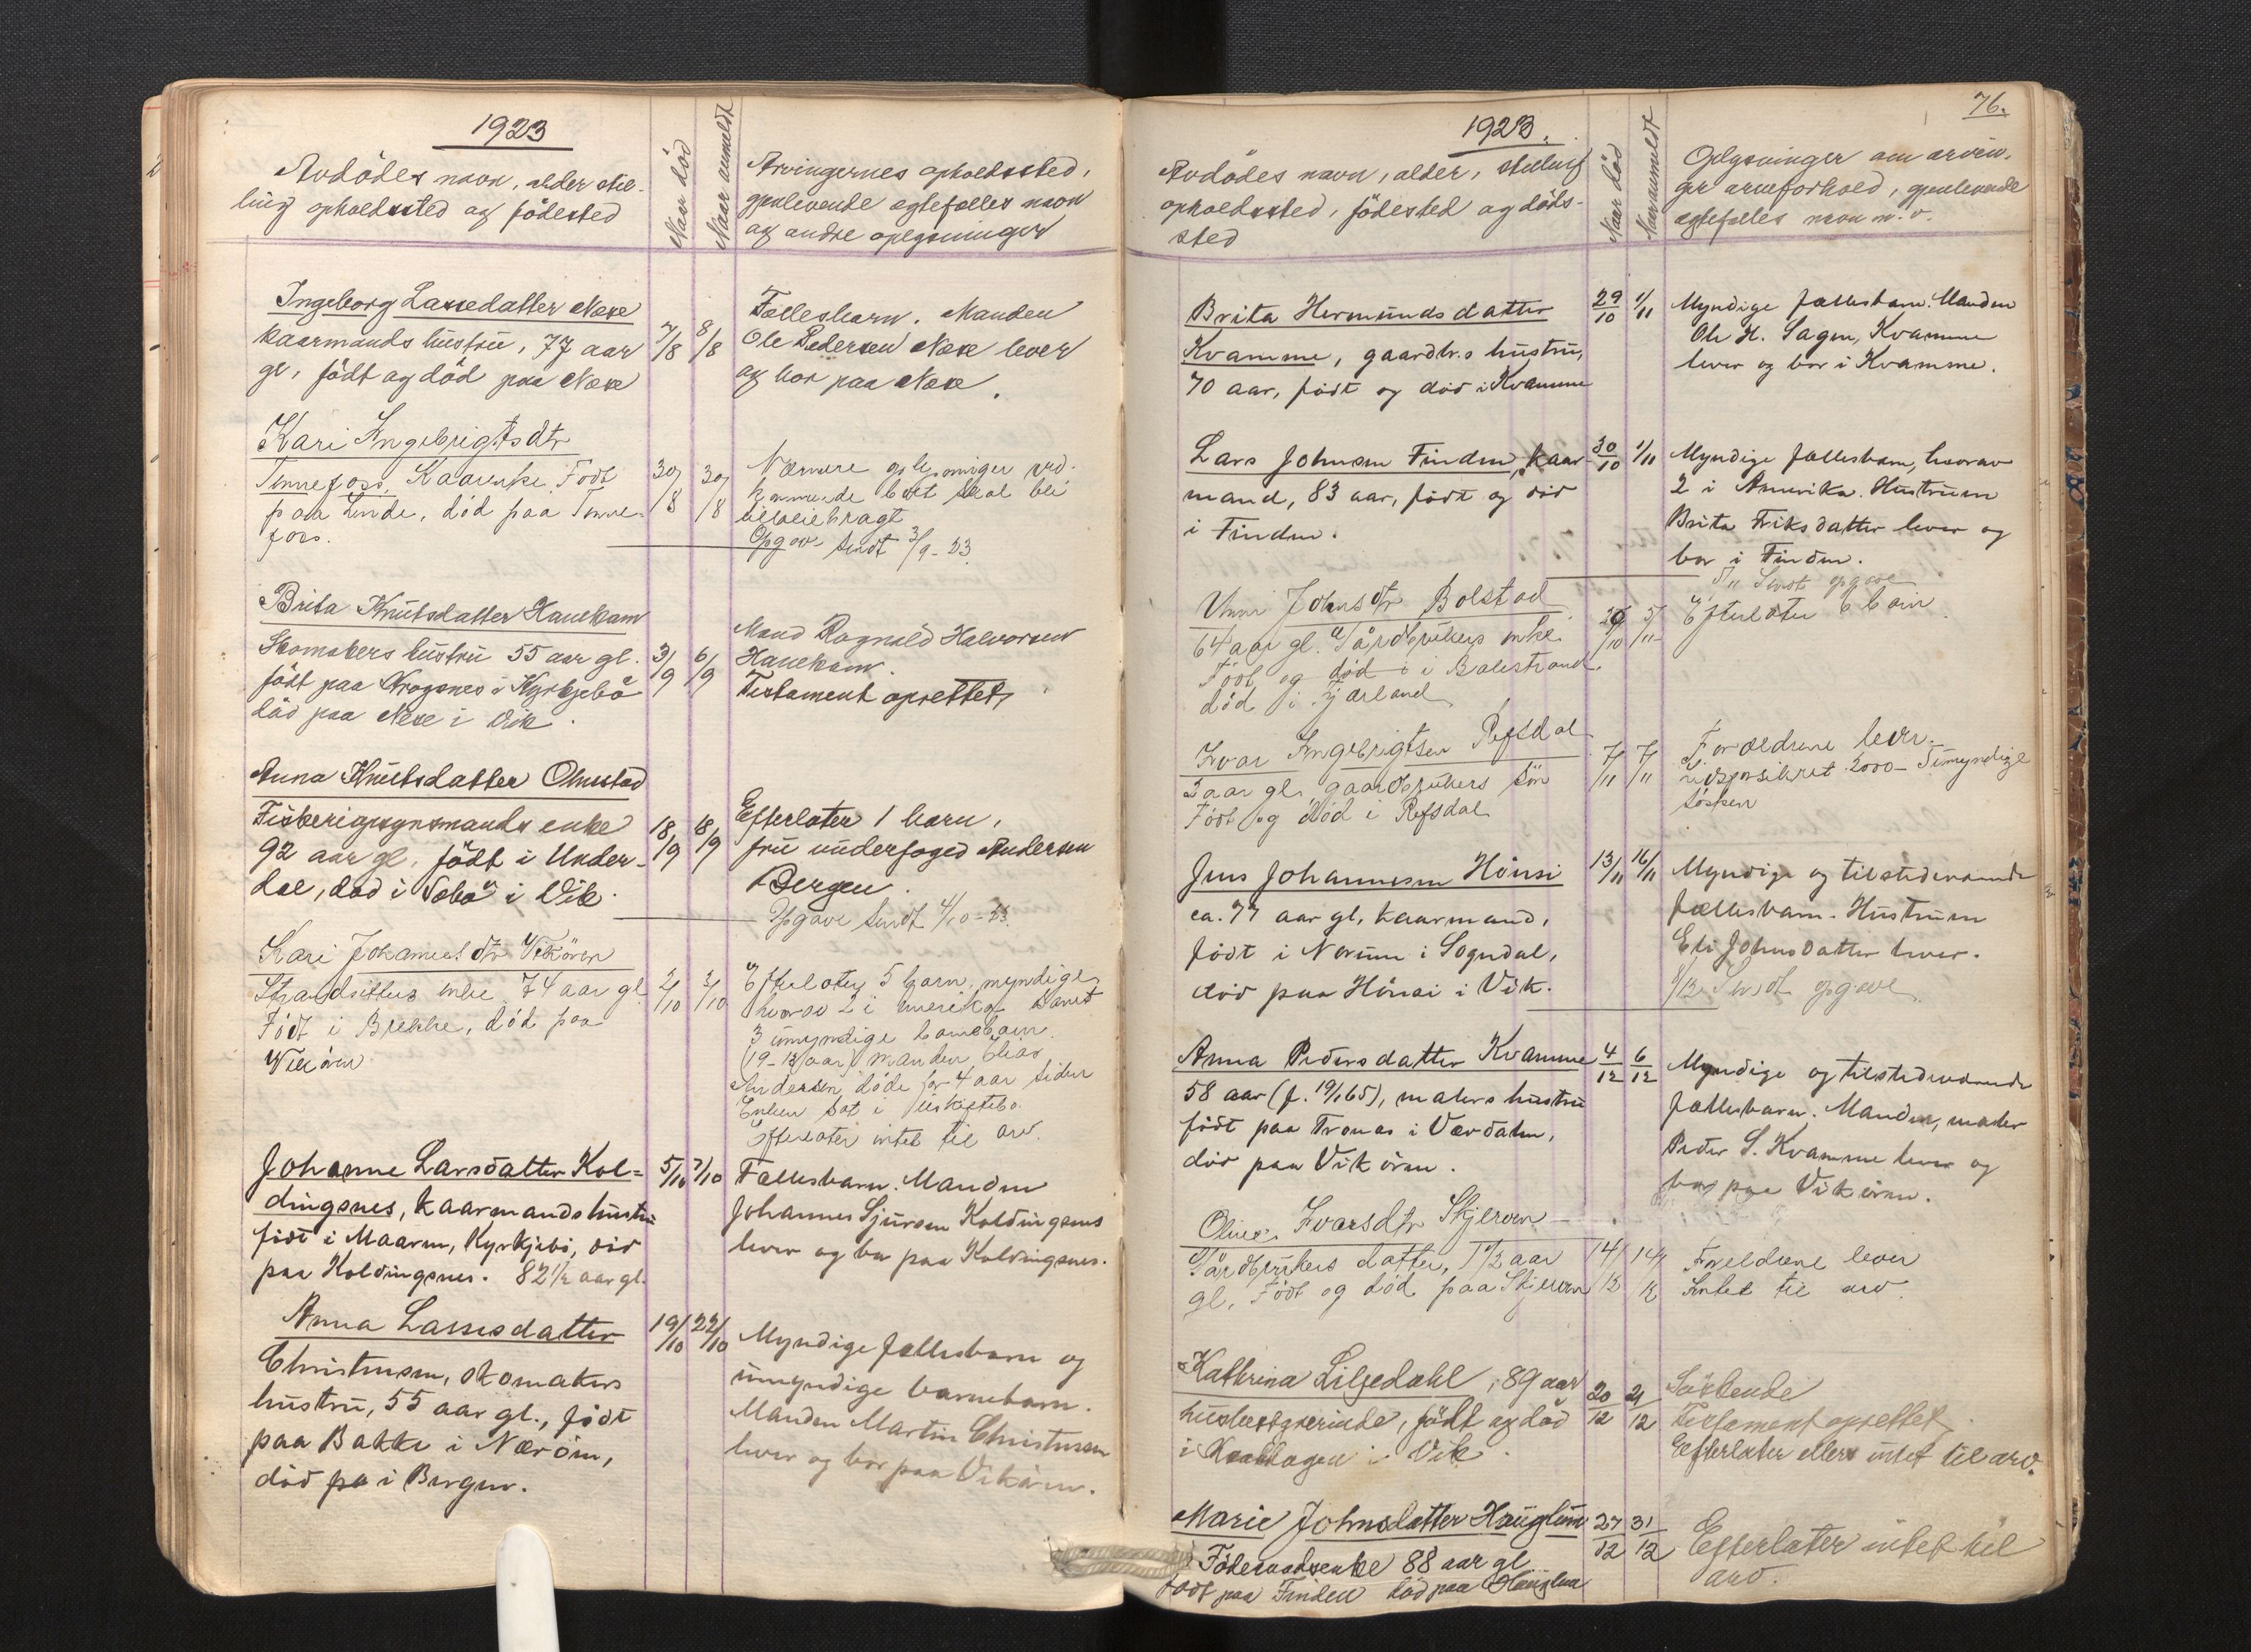 1923
Avdödes navn, alder stil-
ling opholdssted og födested
Naar död
Naar anmeldt
Arvingernes opholdssted,
gjenlevende egtefælles navn
og andre oplysninger
Ingeborg Lassedatter Nese
kaarmands hustru, 77 aar
gl, födt og död paa Nese
7/8
8/8
Fællesbarn. Manden
Ole Pedersen Nese lever
og bor paa Nese.
Kari Ingebrigtsdtr
Tennefoss, Kaarenke. Födt
paa Linde, död paa Tenne-
foss.
30/8
30/8
Nærmere oplysninger ved-
kommende boet skal bli
tilveiebragt
Opgave sendt 3/9-23
Brita Knutsdatter Hanekam
Skomakers hustru 55 aar gl.
födt paa Krogsnes i Kyrkjebö
död paa Nese i Vik.
3/9
6/9
Mand Ragnald Halvorsen
Hanekam.
Testament oprettet.
Anna Knutsdatter Ohnstad
Fiskeriopsynsmands enke
92 aar gl. födt i Under-
dal, död i Sæbö i Vik.
18/9
18/9
Efterlater 1 barn,
fru underfoged Andersen
Bergen.
Opgave sendt 4/10-23.
Kari Johannesdtr Vikören
Strandsitters enke 74 aar gl
Födt i Brekke, död paa
Vikören
2/10
3/10
Efterlater 5 barn, myndige
hvorav 2 i Amerika samt
3 umyndige barnebarn
(19-12 aar) manden Elias
Andersen döde for 4 aar siden
Enken sat i uskiftebo.
Efterlater intet til arv.
Johanne Larsdatter Kol=
dingsnes, kaarmandshustru
födt i Maaren, Kyrkjebö, död
paa Koldingsnes. 82½ aar gl.
5/10
7/10
Fællesbarn. Manden
Johannes Sjursen Koldingsnes
lever og bor paa Koldingsnes.
Anna Lassesdatter
Christensen, skomakers
hustru, 55 aar gl., födt
paa Bakke i Næröen,
död pa i Bergen.
19/10
22/10
Myndige fællesbarn og
umyndige barnebarn.
Manden Martin Christensen
lever og bor paa Vikören.
76.
1923.
Avdödes navn, alder, stilling
opholdssted, födested og döds-
sted
Naar död
Naar anmeldt
Oplysninger om arvin-
ger arveforhold, gjenlevende
egtefælles navn m. v.
Brita Hermundsdatter
Kvamme, gaardbr.s hustru,
70 aar, födt og död i Kvamme
29/10
1/11
Myndige fællesbarn. Manden
Ole H. Sagen, Kvamme
lever og bor i Kvamme.
Lars Johnsen Finden, kaar-
mand, 83 aar, födt og död
i Finden.
30/10
1/11
Myndige fællesbarn, hvorav
2 i Amerika. Hustruen
Brita Eriksdatter lever og
bor i Finden.
5/11 Sendt opgave
Unni Johnsdtr Bolstad
64 aar gl. Gårdbrukers enke.
Födt og död i i Balestrand.
död i Fjærland
26/10
5/11
Efterlater 6 barn.
Ivar Ingebrigtsen Refsdal
3 aar gl. gaardbrukers sön
Födt og död i Refsdal
7/11
7/11
Forældrene lever.
Livsforsikret 2000- 5 umyndige
sösken
Jens Johannesen Hönsi
ca. 77 aar gl, kaarmand,
födt i Norum i Sogndal,
död paa Hönsi i Vik.
13/11
16/11
Myndige og tilstedeværende
fællesbarn. Hustruen
Eli Johnsdatter lever.
8/12 Sendt opgave
Anna Pedersdatter Kvamme
58 aar (f. 19/1 65), malers hustru
födt paa Tronas i Værdalen,
död paa Vikören.
4/12
6/12
Myndige og tilstedeværende
fællesbarn. Manden, maler
Peder S. Kvamme lever og
bor paa Vikören.
Ivarsdtr Skjerven
Gårdbrukers datter, 1½ aar
gl, Födt og död paa Skjerven
14/12
14/12
Foreldrene lever
Intet til arv.
Kathrina Liljedahl, 89 aar
husbestyrerinde, födt og död
i Vik.
20/12
21/12
Söskende
Testament oprettet.
Efterlater ellers intet til arv.
Marie Johnsdatter Hauglum
Föderaadsenke 88 aar gl
födt paa Finden död paa Hauglum
27/12
31/12
Efterlater intet til
arv.